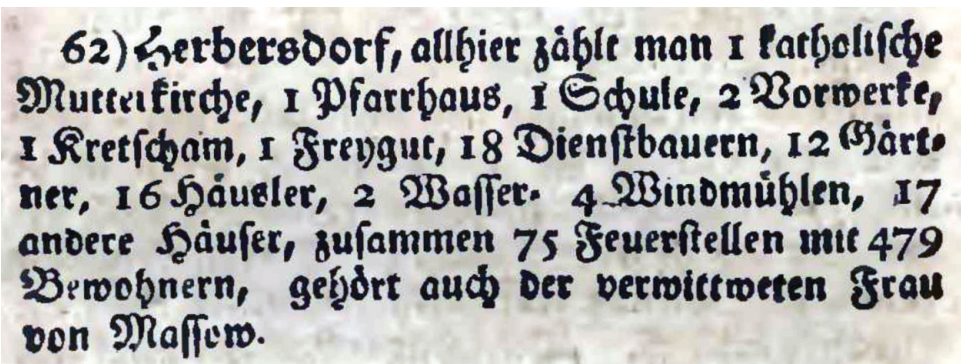 62) Herbersdorf, allhier zählt man 1 katholische
Mutterkirche, 1 Pfarrhaus, 1 Schule, 2 Vorwerke,
1 Kretscham, 1 Freygut, 18 Dienstbauern, 12 Gärt-
ner, 16 Häusler, 2 Wasser- 4 Windmühlen, 17
andere Häuser, zusammen 75 Feuerstellen mit 479
Bewohnern, gehört auch der verwittweten Frau
von Massow.